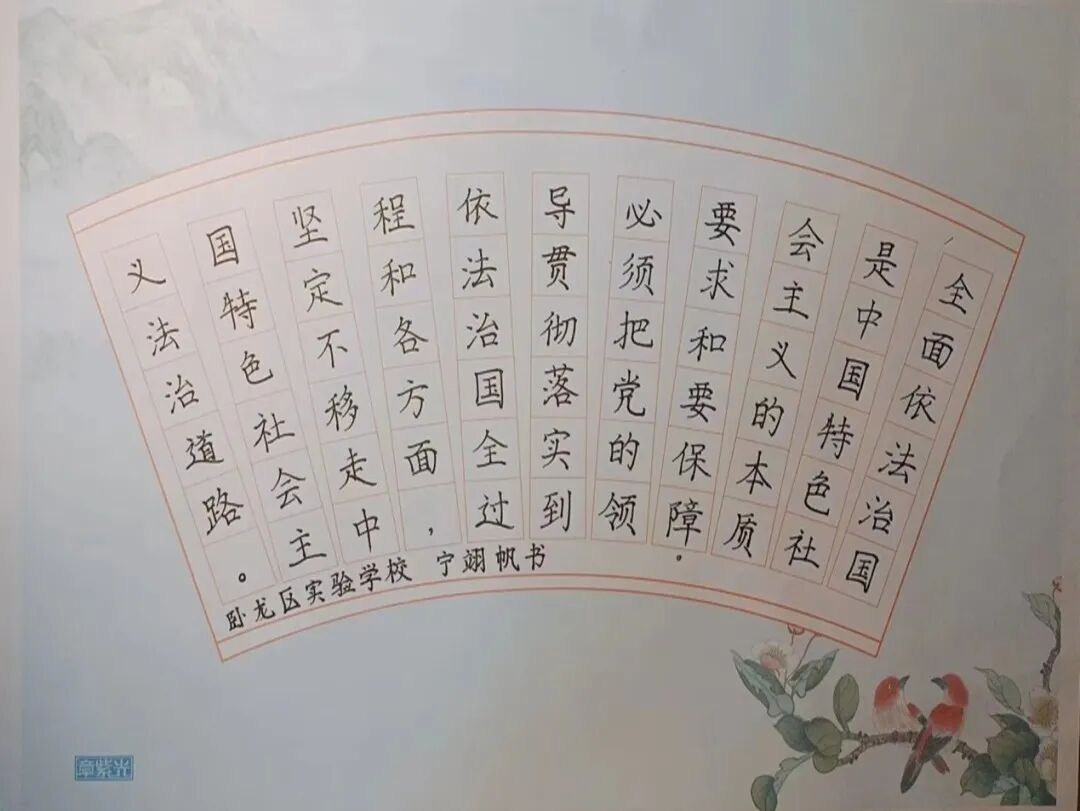 全面依法治国
是中国特色社
会主义的本质
要求和要保障。
必须把党的领
导贯彻落实到
依法治国全过
程和各方面，
坚定不移走中
国特色社会主
义法治道路。
卧龙区实验学校 宁翊帆书
章紫光